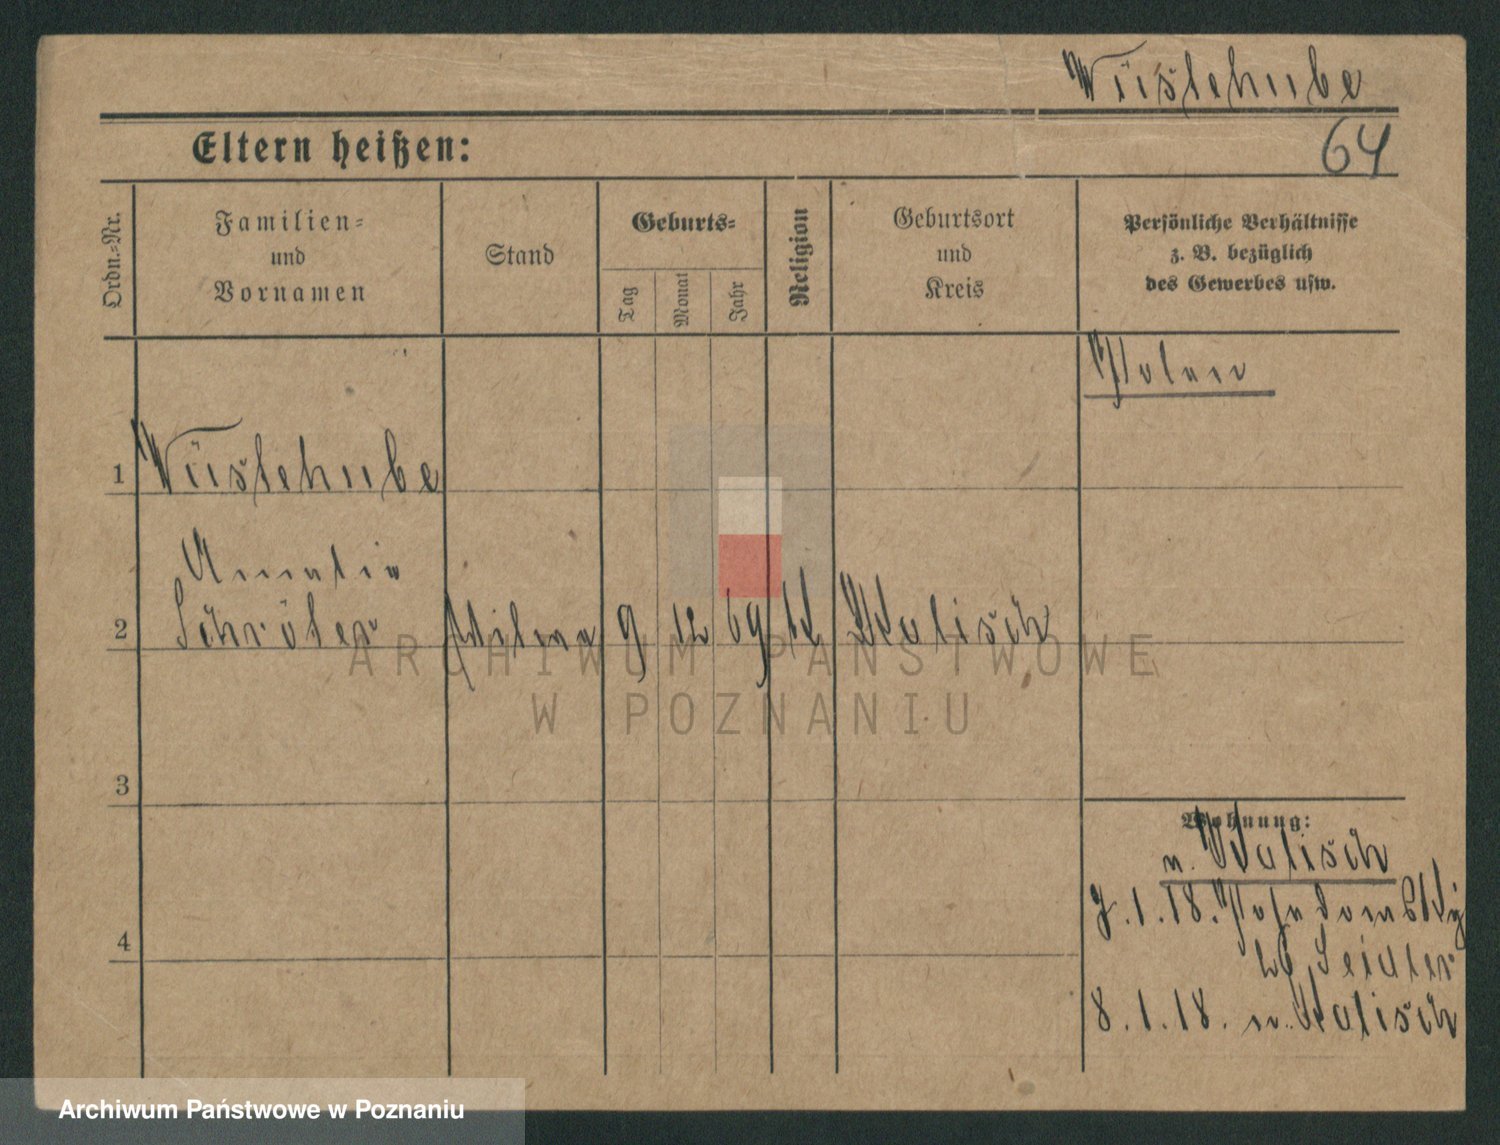 Wüstehube
64
Eltern heißen:
Ordn.-Nr.
Familien-
und
Vornamen
Stand
Geburts-
Tag
Monat
Jahr
Religion
Geburtsort
und
Kreis
Persönliche Verhältnisse
z. B. bezüglich
des Gewerbes usw.
Polen
1 Wüstehube
Amalie
2 Schröter 9 12 69 Kalisch
3
Wohnung:
n. Kalisch
7.1.18.
8.1.18. n. Kalisch
4
ARCHIWUM PAŃSTWOWE
W POZNANIU
Archiwum Państwowe w Poznaniu